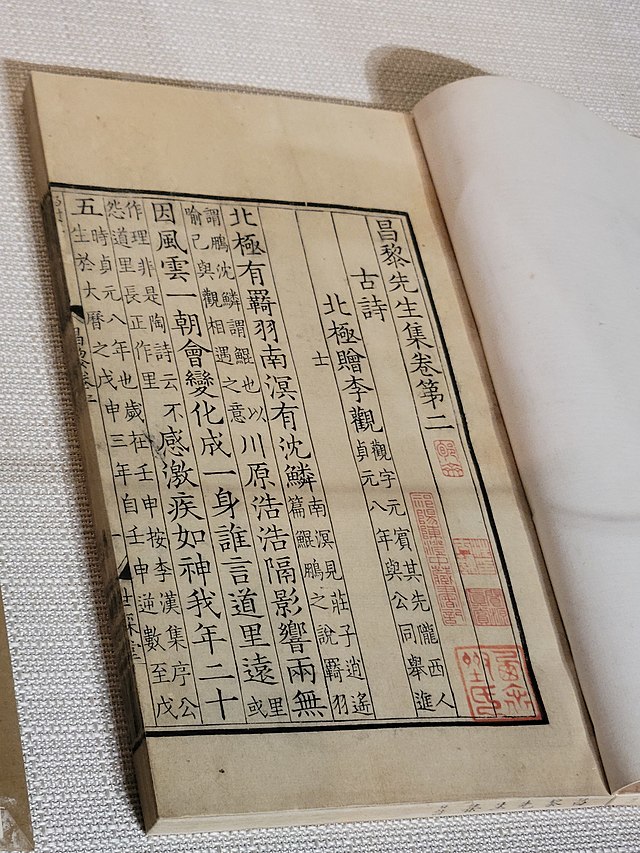 昌黎先生集卷第二
古詩
北極贈李觀 觀字元賓其先隴西人
貞元八年與公同舉進
士
北極有羇羽南溟有沈鱗 南溟見莊子逍遙
篇鯤鵬之說羇羽
謂鵬沈鱗謂鯤也以
喻己與觀相遇之意 川原浩浩隔影響兩無
因風雲一朝會變化成一身誰言道里遠 里
或
作理非是陶詩云不
怨道里長正作里 感激疾如神我年二十
五 時貞元八年也歲在壬申按李漢集序公
生於大曆之戊申三年自壬申逆數至戊
世綵堂